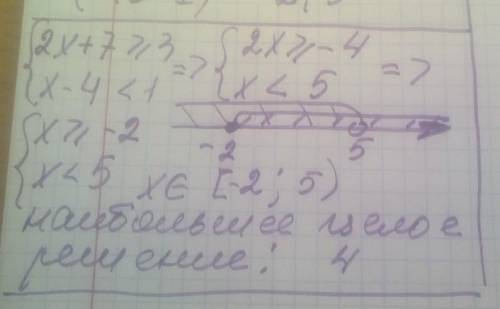 {2x+7⩾3 => {2x⩾-4
{x-4<1 {x<5 =>
{x⩾-2
{x<5
-2 5
x∈ [-2; 5)
наибольшее целое
решение: 4